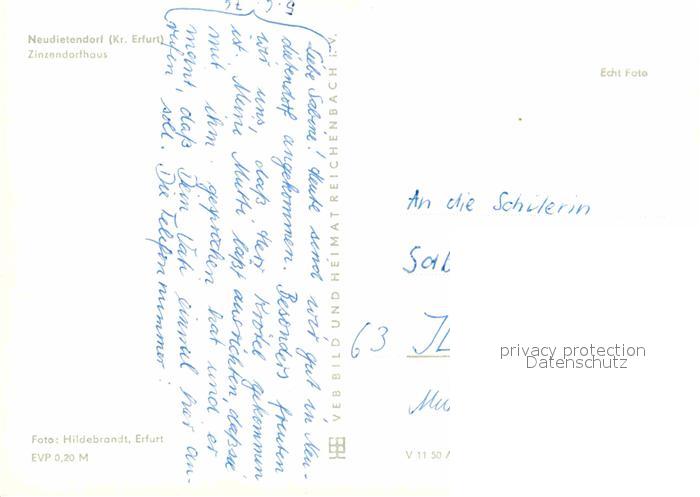 Neudietendorf (Kr. Erfurt)
Zinzendorfhaus
5. 6. 76
Liebe Sabine! Heute sind wir gut in Neu-
dietendorf angekommen. Besonders freuten
wir uns, daß Herr Krötel gekommen
ist. Meine Mutti läßt ausrichten, daß sie
mit ihm gesprochen hat und er
meint, daß Dein Vati einmal hier an-
rufen soll. Die Telefonnummer:
Foto: Hildebrandt, Erfurt
EVP 0,20 M
VEB BILD UND HEIMAT REICHENBACH i. V.
Echt Foto
An die Schülerin
Sab
63 IL
V 11 50
privacy protection
Datenschutz